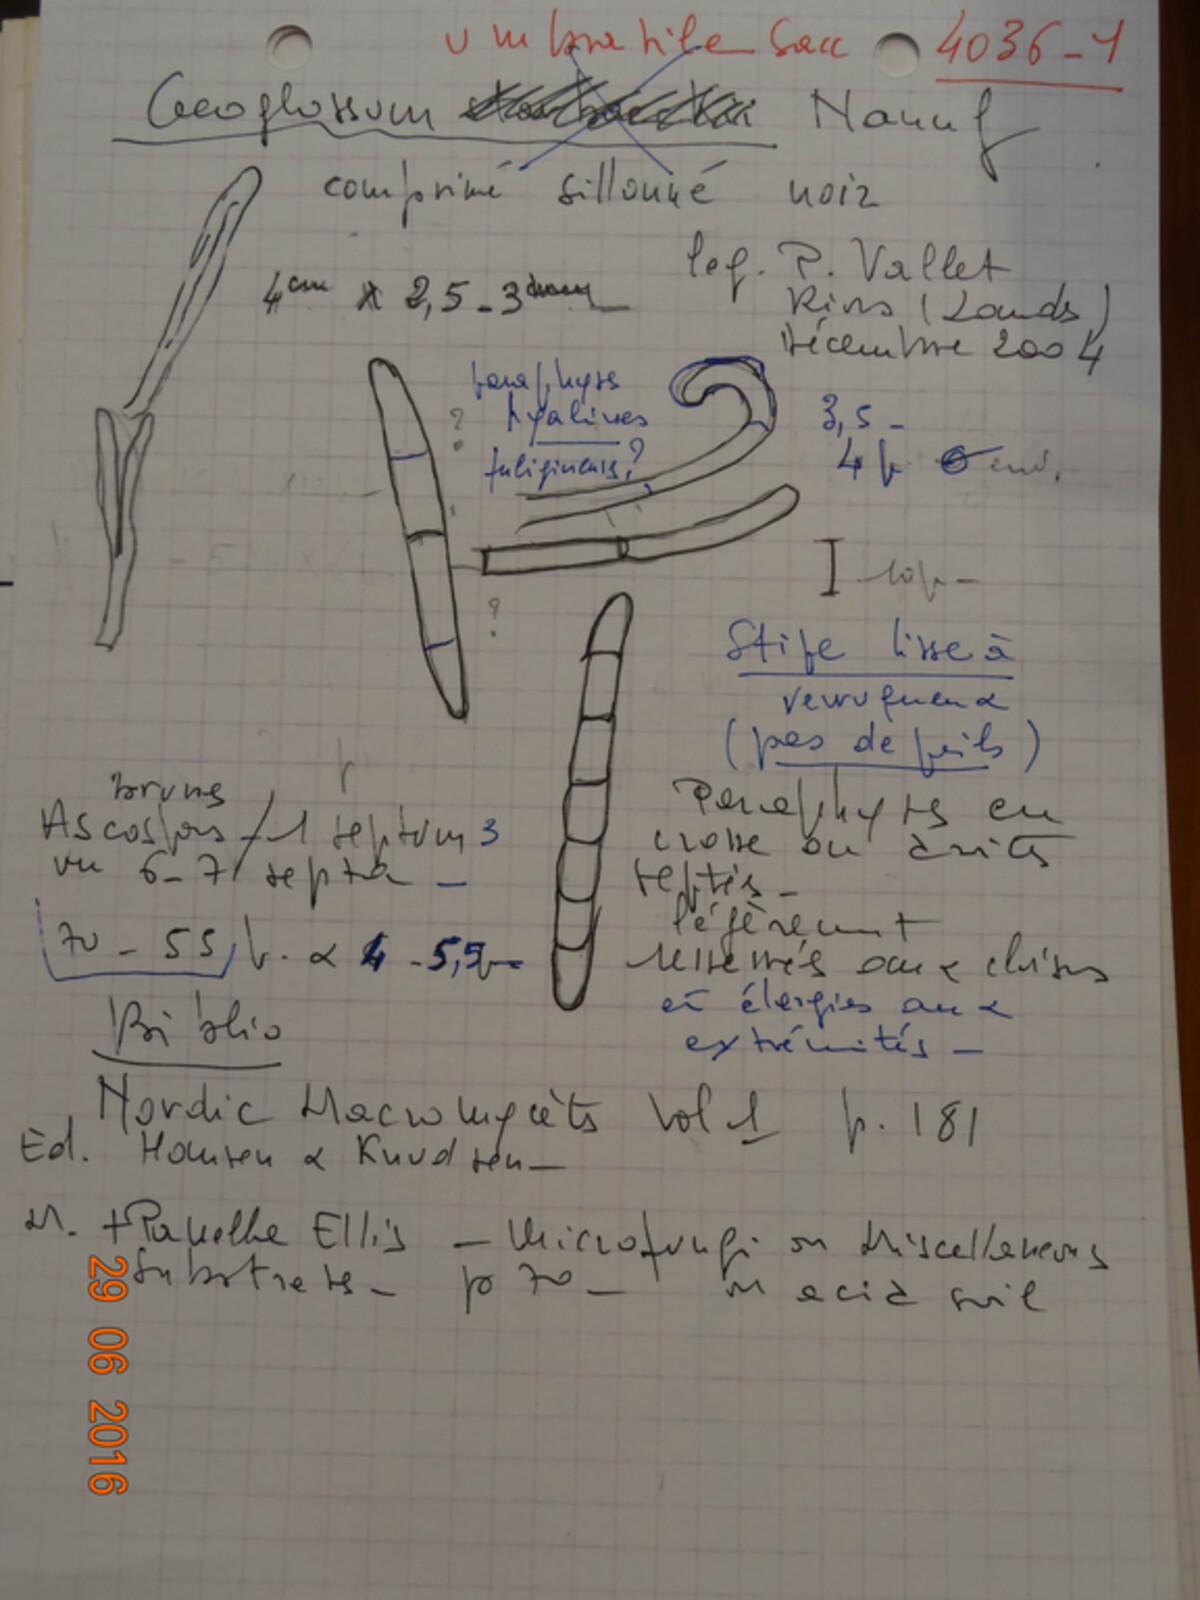 umbratile Sacc 4036-1
Geoglossum Nannf
comprimé sillonné noir
leg. P. Vallet
4cm x 2,5-3
Rion (Lands)
Décembre 2004
paraphyses
hyalines
fuligineuses?
?
3,5-
4µ env.
I 10µ-
?
Stife lisse à
verruqueux
(pas de poils)
brunes
Ascospores 1 septum 3
vu 6-7 septa -
70-55 µ. x 4-5,5µ-
Paraphyses en
crosse ou droites
septés-
légèrement
resserrés aux cloisons
et élargies aux
extrémités-
Biblio
Nordic Macromycèts Vol 1 p. 181
Ed. Hansen & Knudsen-
M. + Pamella Ellis - Microfungi on Miscellaneous
Substrates- p 70- on acid soil
29 06 2016